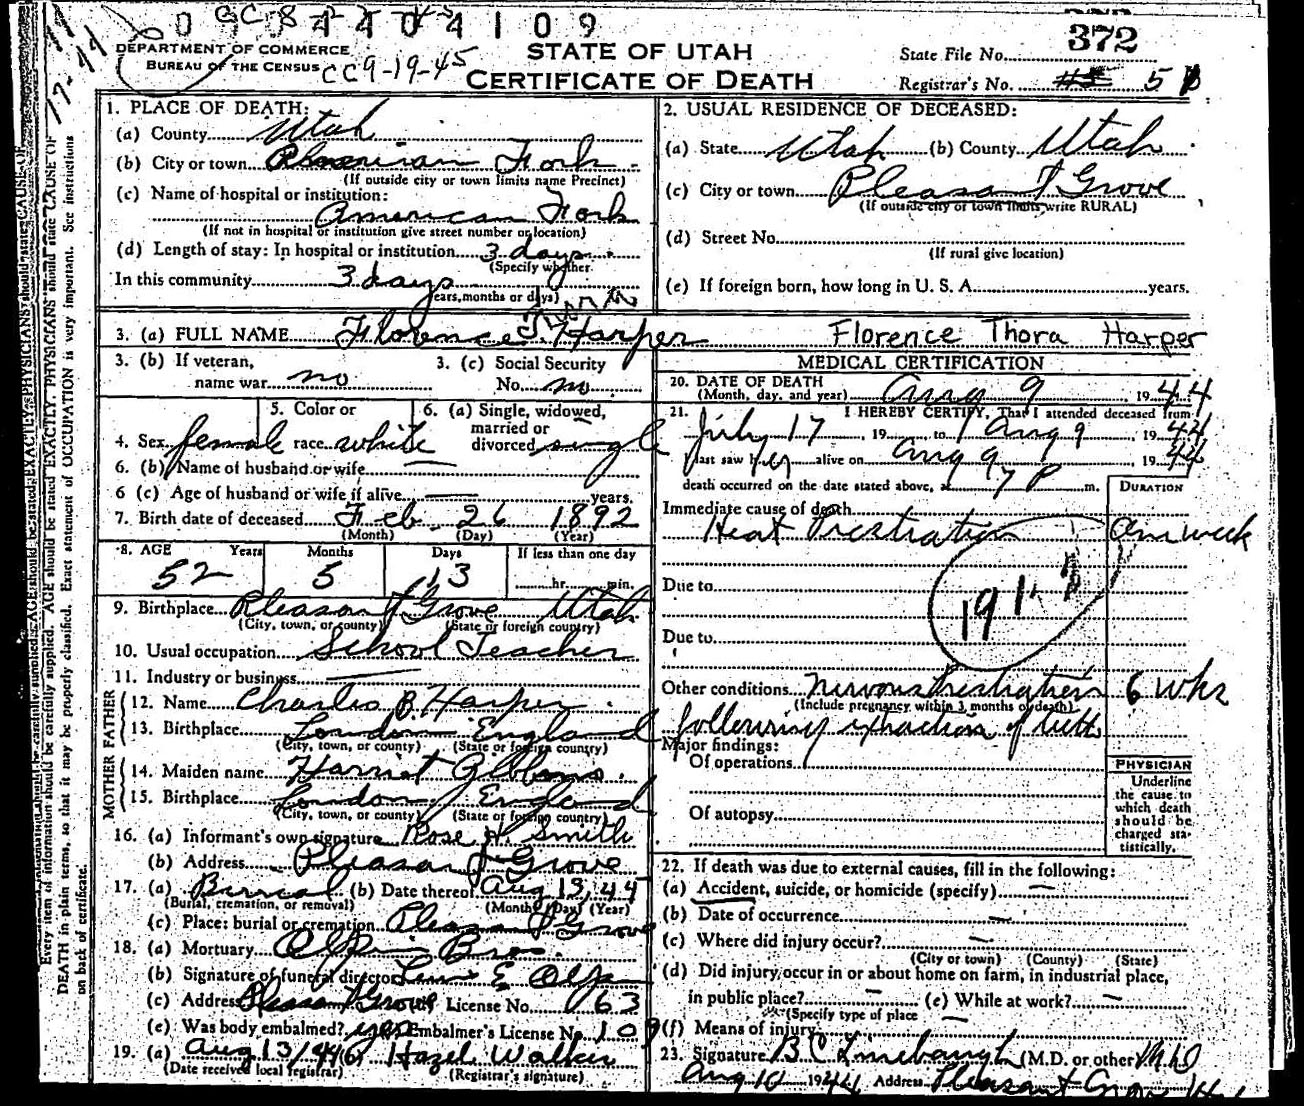 0 9 0 4 4 0 4 1 0 9
DEPARTMENT OF COMMERCE
BUREAU OF THE CENSUS
CC9-19-45
STATE OF UTAH
CERTIFICATE OF DEATH
State File No. 372
Registrar's No. 5
1. PLACE OF DEATH:
(a) County Utah
(b) City or town American Fork
(If outside city or town limits name Precinct)
(c) Name of hospital or institution:
American Fork
(If not in hospital or institution give street number or location)
(d) Length of stay: In hospital or institution 3 days
(Specify whether
In this community 3 days
years, months or days)
2. USUAL RESIDENCE OF DECEASED:
(a) State Utah (b) County Utah
(c) City or town Pleasant Grove
(If outside city or town limits write RURAL)
(d) Street No.
(If rural give location)
(e) If foreign born, how long in U. S. A. years.
3. (a) FULL NAME Florence T. Harper Florence Thora Harper
3. (b) If veteran, name war no
3. (c) Social Security No. no
4. Sex female
5. Color or race white
6. (a) Single, widowed, married or divorced single
6. (b) Name of husband or wife
6 (c) Age of husband or wife if alive years.
7. Birth date of deceased Feb. 26 1892
(Month) (Day) (Year)
8. AGE Years Months Days If less than one day
52 5 13 hr. min.
9. Birthplace Pleasant Grove Utah
(City, town, or county) (State or foreign country)
10. Usual occupation School Teacher
11. Industry or business
FATHER
12. Name Charles B. Harper
13. Birthplace London England
(City, town, or county) (State or foreign country)
MOTHER
14. Maiden name Harriet Gibbons
15. Birthplace London, England
(City, town, or county) (State or foreign country)
16. (a) Informant's own signature Rose H. Smith
(b) Address Pleasant Grove
17. (a) Burial (b) Date thereof Aug 13, 44
(Burial, cremation, or removal) (Month) (Day) (Year)
(c) Place: burial or cremation Pleasant Grove
18. (a) Mortuary Olpin Bros.
(b) Signature of funeral director E. Olpin
(c) Address Pleasant Grove License No. 63
(e) Was body embalmed? yes Embalmer's License No. 109
19. (a) Aug 13/44 (b) Hazel Walker
(Date received local registrar) (Registrar's signature)
MEDICAL CERTIFICATION
20. DATE OF DEATH
(Month, day, and year) Aug 9 1944
21. I HEREBY CERTIFY, That I attended deceased from
July 17, 19 to Aug 9, 1944
I last saw her alive on Aug 9 1944
death occurred on the date stated above, at 7 P m.
DURATION
Immediate cause of death
Heat Prostration one week
Due to
191
Due to
Other conditions nervous Prostration 6 wks
(Include pregnancy within 3 months of death)
following extraction of teeth
Major findings:
Of operations
Of autopsy
PHYSICIAN
Underline the cause to which death should be charged statistically.
22. If death was due to external causes, fill in the following:
(a) Accident, suicide, or homicide (specify)
(b) Date of occurrence
(c) Where did injury occur?
(City or town) (County) (State)
(d) Did injury occur in or about home on farm, in industrial place,
in public place? (e) While at work?
(Specify type of place
(f) Means of injury
23. Signature B C Linebaugh (M.D. or other) M.D
Aug 10 1944 Address Pleasant Grove
Every item of information should be carefully supplied. AGE should be stated EXACTLY. PHYSICIANS should state CAUSE OF
DEATH in plain terms, so that it may be properly classified. Exact statement of OCCUPATION is very important. See instructions
on back of certificate.